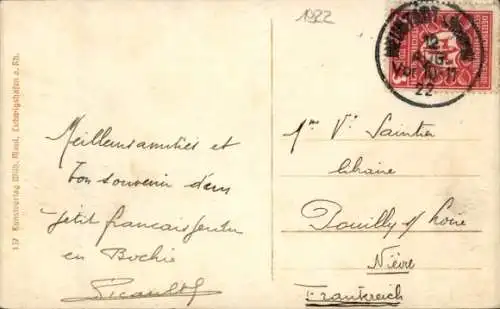 1922
12.
22
137 Kunstverlag Wilh. Maul, Ludwigshafen a. Rh.
Meilleurs amitiés et
bon souvenir d'un
petit français perdu
en Bochie
Picault
Saintier
libraire
Pouilly s/ Loire
Nièvre
Frankreich